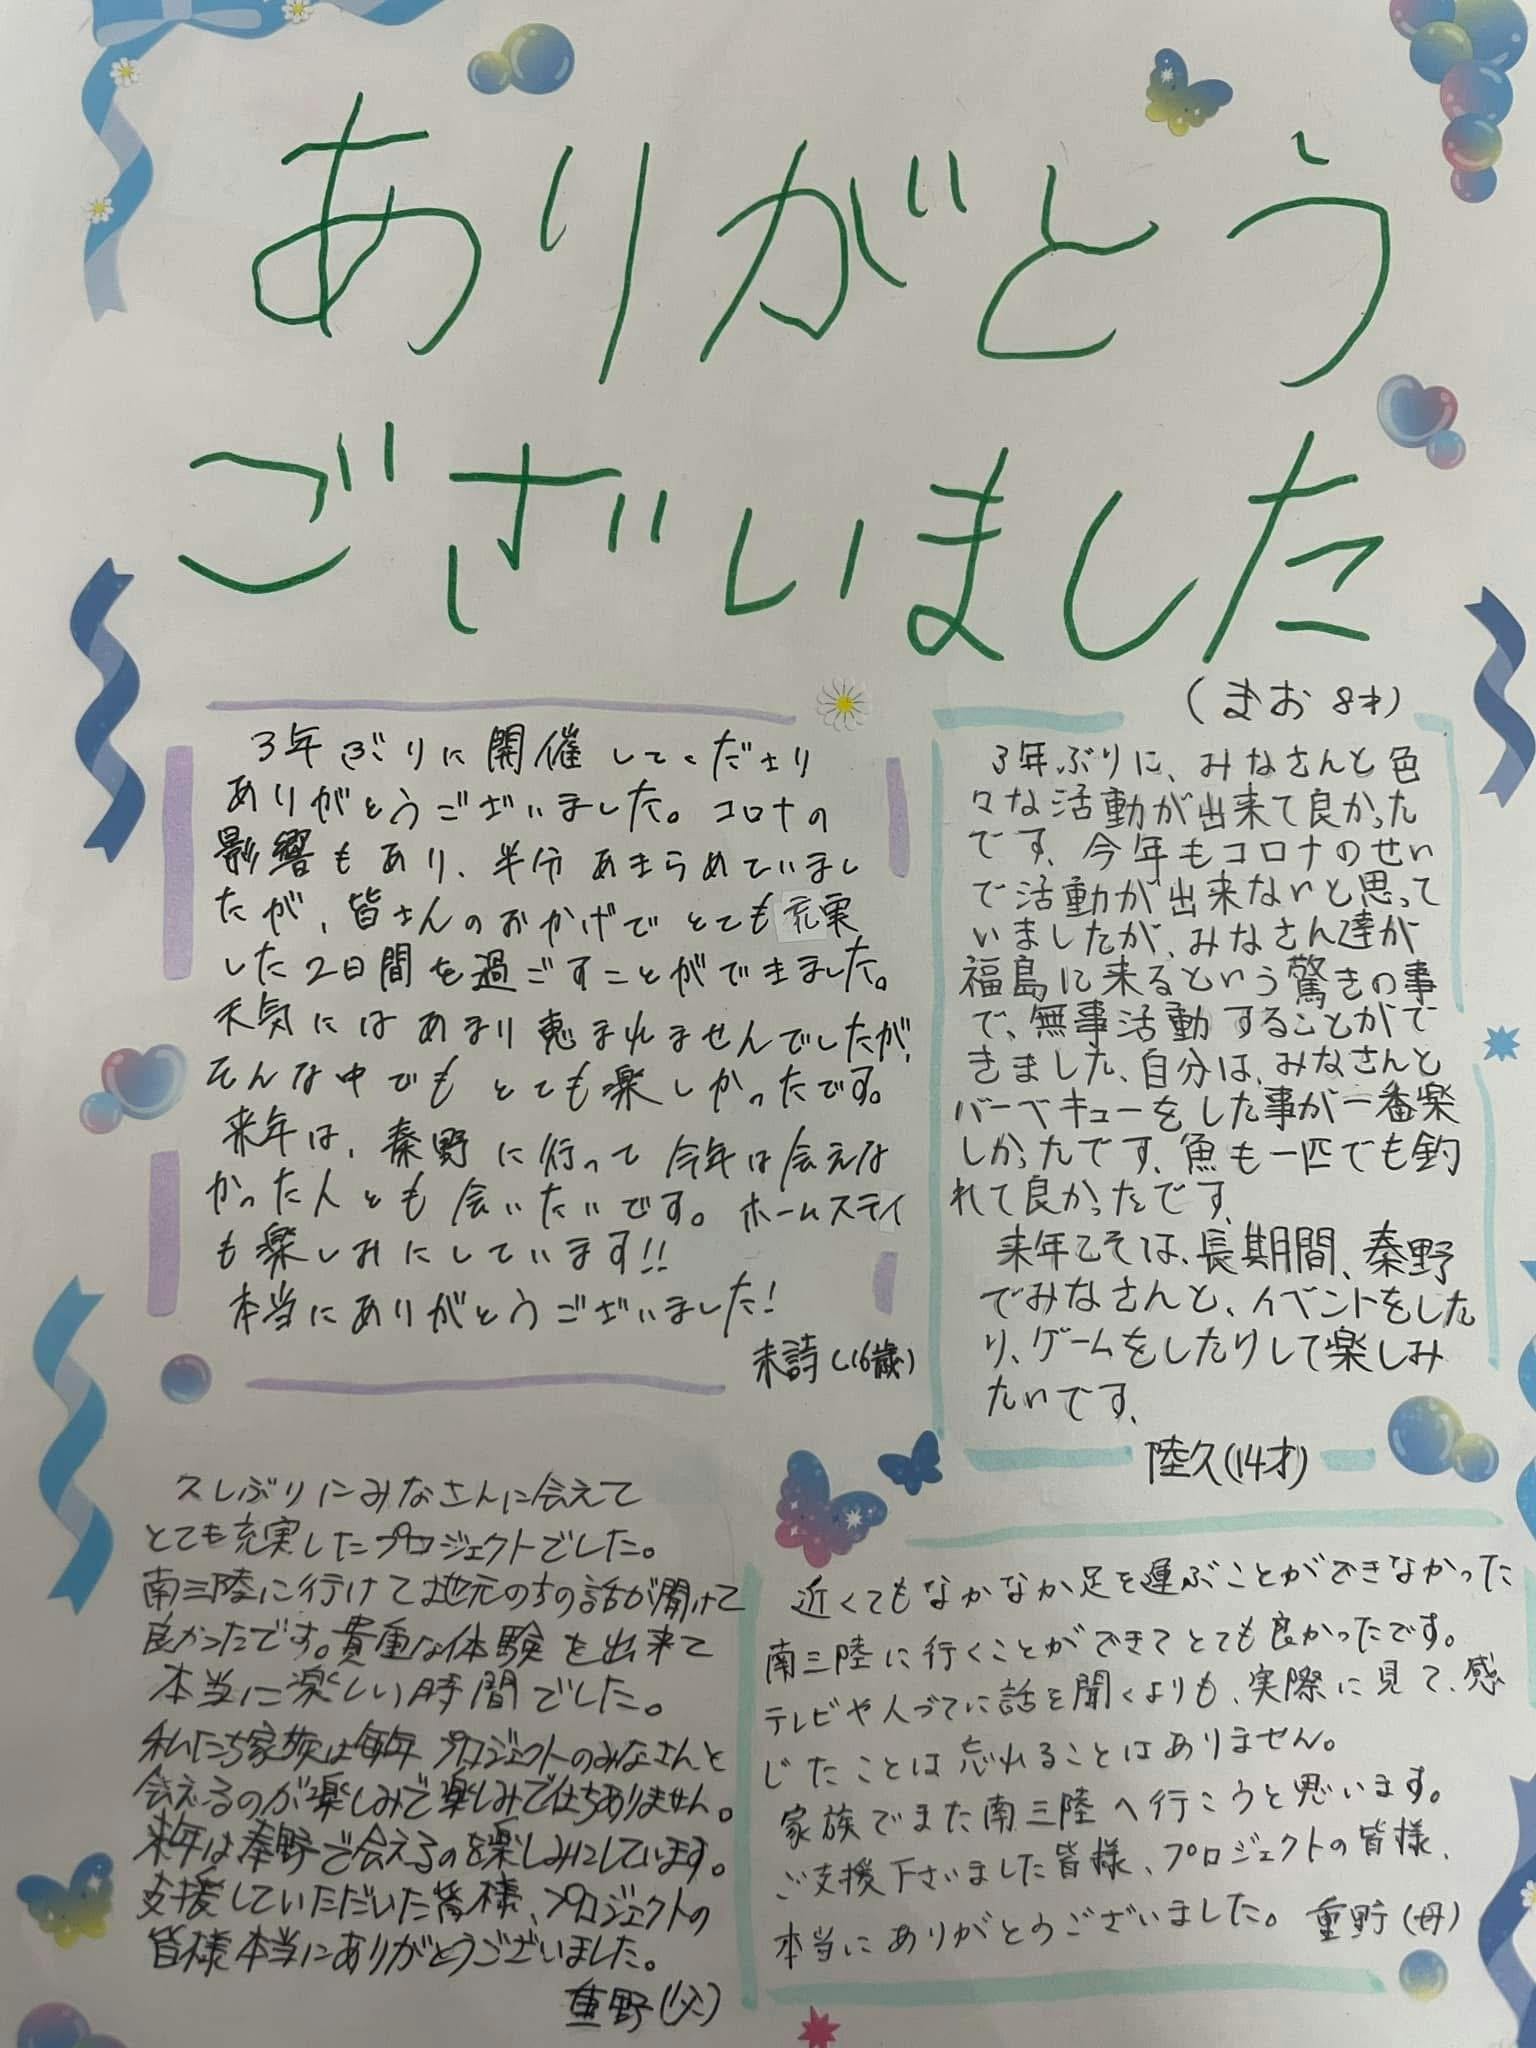 ありがとう
ございました
(まお 8才)
3年ぶりに開催してくださり
ありがとうございました。コロナの
影響もあり、半分あきらめていまし
たが、皆さんのおかげでとても充実
した2日間を過ごすことができました。
天気にはあまり恵まれませんでしたが、
そんな中でもとても楽しかったです。
来年は、秦野に行って今年は会えな
かった人とも会いたいです。ホームステイ
も楽しみにしています!!
本当にありがとうございました!
未詩(16歳)
3年ぶりに、みなさんと色
々な活動が出来て良かった
です、今年もコロナのせい
で活動が出来ないと思って
いましたが、みなさん達が
福島に来るという驚きの事
で、無事活動することがで
きました、自分は、みなさんと
バーベキューをした事が一番楽
しかったです、魚も一匹でも釣
れて良かったです、
来年こそは、長期間、秦野
でみなさんと、イベントをした
り、ゲームをしたりして楽しみ
たいです、
陸久(14才)
久しぶりにみなさんに会えて
とても充実したプロジェクトでした。
南三陸に行けて地元のちの話が聞けて
良かったです。貴重な体験を出来て
本当に楽しい時間でした。
私たち家族は毎年プロジェクトのみなさんと
会えるのが楽しみで楽しみで仕ちありません。
来年は秦野で会えるのを楽しみにしています。
支援していただいた皆様、プロジェクトの
皆様本当にありがとうございました。
重野(父)
近くてもなかなか足を運ぶことができなかった
南三陸に行くことができてとても良かったです。
テレビや人づてに話を聞くよりも、実際に見て、感
じたことは忘れることはありません。
家族でまた南三陸へ行こうと思います。
ご支援下さいました皆様、プロジェクトの皆様、
本当にありがとうございました。重野(母)